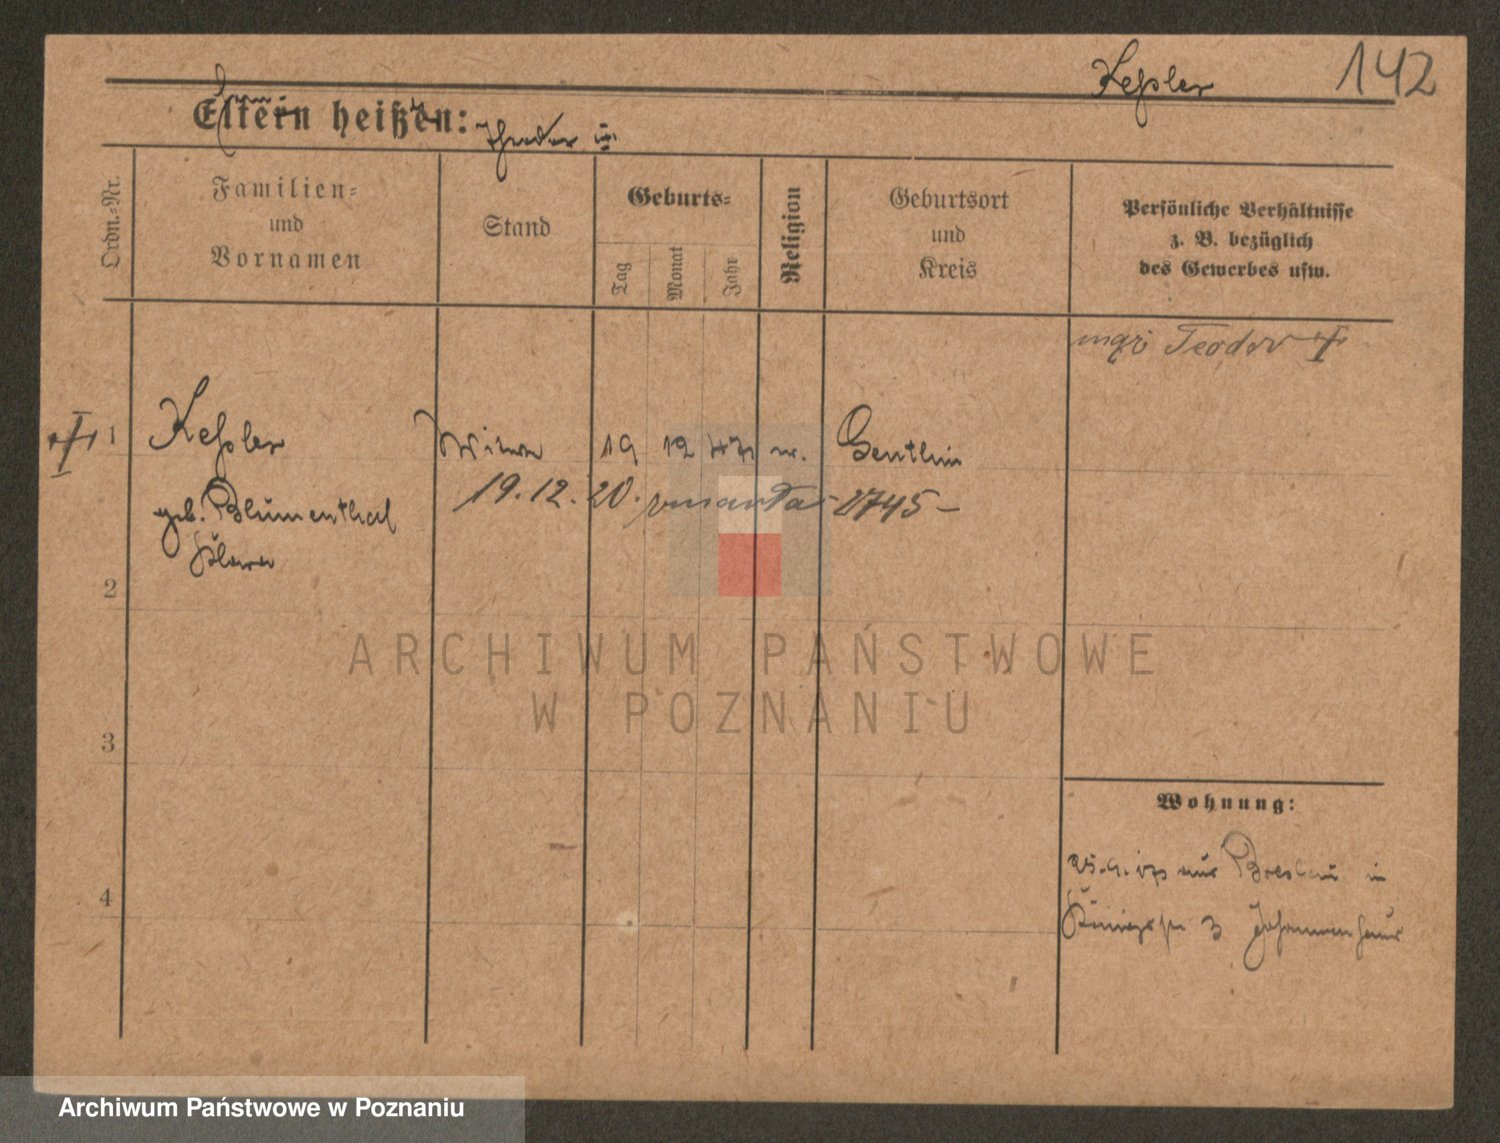 Keßler
142
Eltern heißen:
Theodor †
Ordn.-Nr.
Familien-
und
Vornamen
Stand
Geburts-
Tag
Monat
Jahr
Religion
Geburtsort
und
Kreis
Persönliche Verhältnisse
z. B. bezüglich
des Gewerbes usw.
mąż Teodor †
† 1 Keßler Witwe 19 12 Genthin
19.12.20. zmarła 2745
geb. Blumenthal
Klara
2
3
4
Wohnung:
aus Breslau in
Königspl 3 Johannenhaus
ARCHIWUM PAŃSTWOWE
W POZNANIU
Archiwum Państwowe w Poznaniu